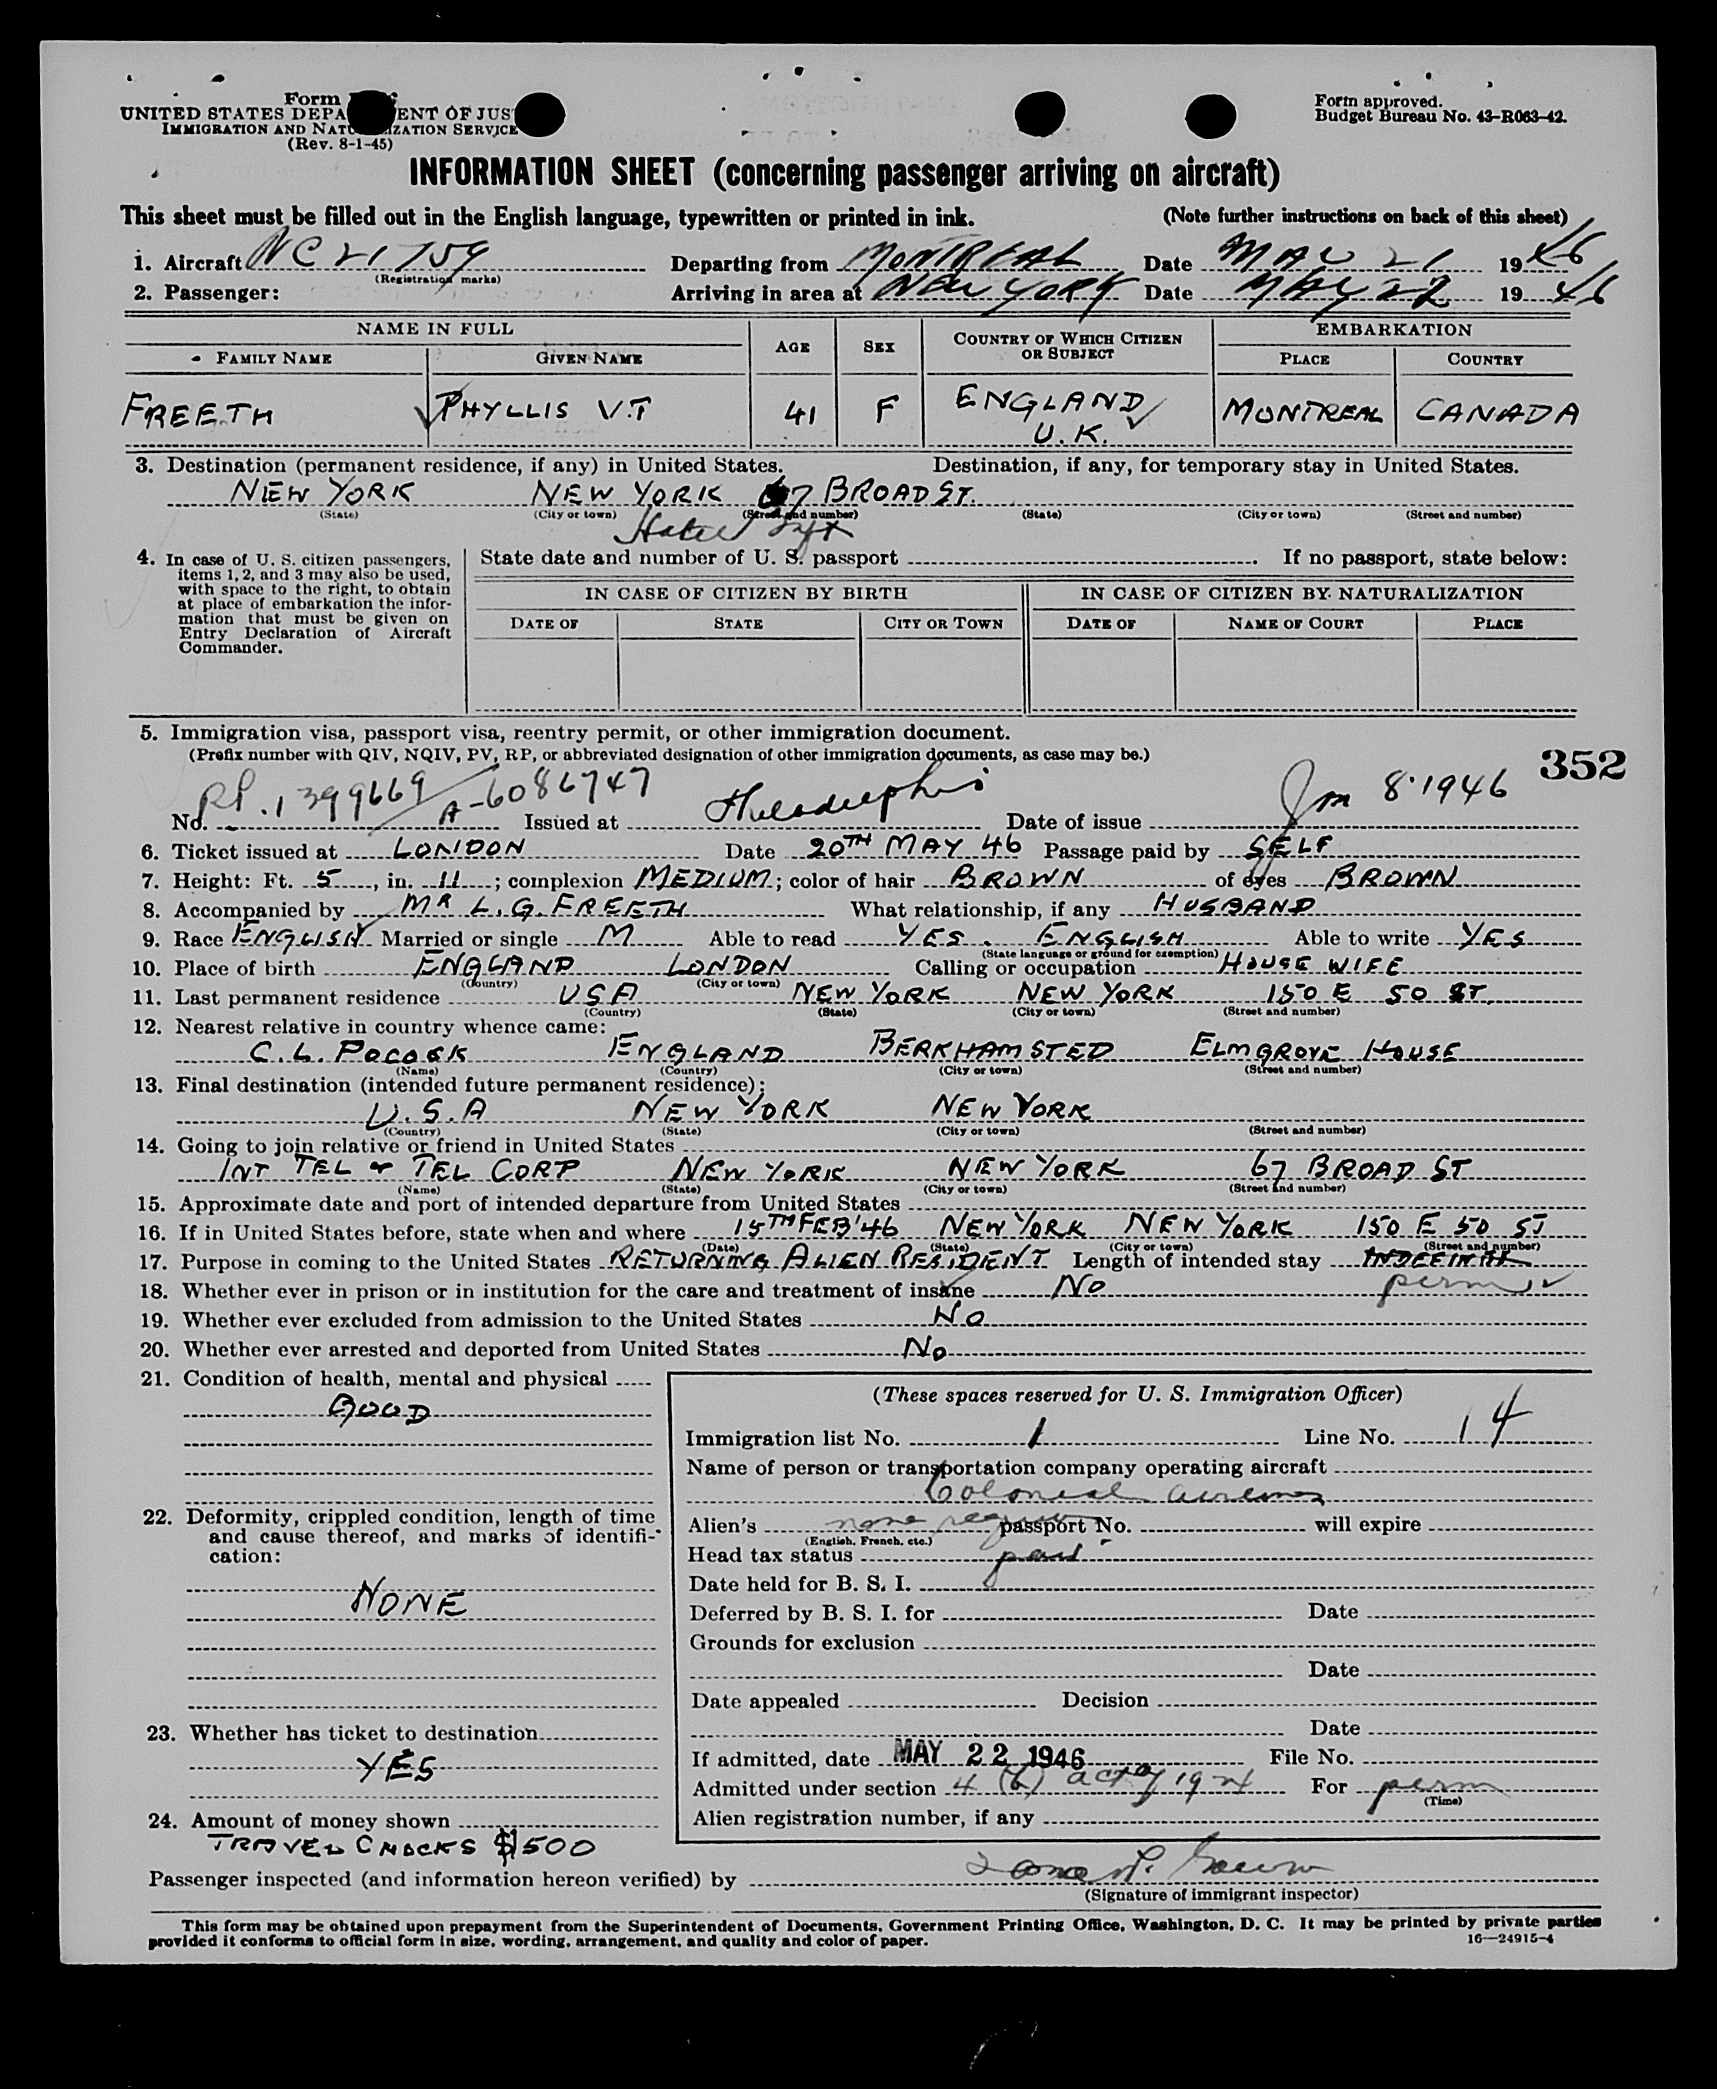 Form
UNITED STATES DEPA ENT OF JUS
IMMIGRATION AND NATU IZATION SERVICE
(Rev. 8-1-45)
Form approved.
Budget Bureau No. 43-R063-42.
INFORMATION SHEET (concerning passenger arriving on aircraft)
This sheet must be filled out in the English language, typewritten or printed in ink. (Note further instructions on back of this sheet)
1. Aircraft NC 21759 Departing from MONTREAL Date MAY 21 1946
(Registration marks)
2. Passenger: Arriving in area at NEW YORK Date MAY 22 1946
NAME IN FULL AGE SEX COUNTRY OF WHICH CITIZEN OR SUBJECT EMBARKATION
FAMILY NAME GIVEN NAME PLACE COUNTRY
FREETH PHYLLIS V.T 41 F ENGLAND U.K. MONTREAL CANADA
3. Destination (permanent residence, if any) in United States. Destination, if any, for temporary stay in United States.
NEW YORK NEW YORK 67 BROAD ST.
(State) (City or town) (Street and number) (State) (City or town) (Street and number)
Hotel
4. In case of U. S. citizen passengers, items 1, 2, and 3 may also be used, with space to the right, to obtain at place of embarkation the information that must be given on Entry Declaration of Aircraft Commander.
State date and number of U. S. passport . If no passport, state below:
IN CASE OF CITIZEN BY BIRTH IN CASE OF CITIZEN BY NATURALIZATION
DATE OF STATE CITY OR TOWN DATE OF NAME OF COURT PLACE
5. Immigration visa, passport visa, reentry permit, or other immigration document.
(Prefix number with QIV, NQIV, PV, RP, or abbreviated designation of other immigration documents, as case may be.)
352
No. RP. 1399669 A-6086747 Issued at Philadelphia Date of issue Jan 8 1946
6. Ticket issued at LONDON Date 20TH MAY 46 Passage paid by SELF
7. Height: Ft. 5, in. 11; complexion MEDIUM; color of hair BROWN of eyes BROWN
8. Accompanied by MR L. G. FREETH What relationship, if any HUSBAND
9. Race ENGLISH Married or single M Able to read YES. ENGLISH Able to write YES
(State language or ground for exemption)
10. Place of birth ENGLAND LONDON Calling or occupation HOUSE WIFE
(Country) (City or town)
11. Last permanent residence USA NEW YORK NEW YORK 150 E 50 ST.
(Country) (State) (City or town) (Street and number)
12. Nearest relative in country whence came:
C. L. POCOCK ENGLAND BERKHAMSTED ELMGROVE HOUSE
(Name) (Country) (City or town) (Street and number)
13. Final destination (intended future permanent residence):
U.S.A NEW YORK NEW YORK
(Country) (State) (City or town) (Street and number)
14. Going to join relative or friend in United States
INT TEL & TEL CORP NEW YORK NEW YORK 67 BROAD ST
(Name) (State) (City or town) (Street and number)
15. Approximate date and port of intended departure from United States
16. If in United States before, state when and where 15TH FEB '46 NEW YORK NEW YORK 150 E 50 ST
(Date) (State) (City or town) (Street and number)
17. Purpose in coming to the United States RETURNING ALIEN RESIDENT Length of intended stay INDEFINITE
perm
18. Whether ever in prison or in institution for the care and treatment of insane NO
19. Whether ever excluded from admission to the United States NO
20. Whether ever arrested and deported from United States NO
21. Condition of health, mental and physical
GOOD
22. Deformity, crippled condition, length of time and cause thereof, and marks of identification:
NONE
23. Whether has ticket to destination
YES
24. Amount of money shown
TRAVEL CHECKS $1500
(These spaces reserved for U. S. Immigration Officer)
Immigration list No. 1 Line No. 14
Name of person or transportation company operating aircraft
Colonial Airlines
Alien's none passport No. will expire
(English, French, etc.)
Head tax status paid
Date held for B. S. I.
Deferred by B. S. I. for Date
Grounds for exclusion
Date
Date appealed Decision
Date
If admitted, date MAY 22 1946 File No.
Admitted under section 4 (b) act of 1924 For perm
(Time)
Alien registration number, if any
Passenger inspected (and information hereon verified) by
(Signature of immigrant inspector)
This form may be obtained upon prepayment from the Superintendent of Documents, Government Printing Office, Washington, D. C. It may be printed by private parties
provided it conforms to official form in size, wording, arrangement, and quality and color of paper.
16—24915-4